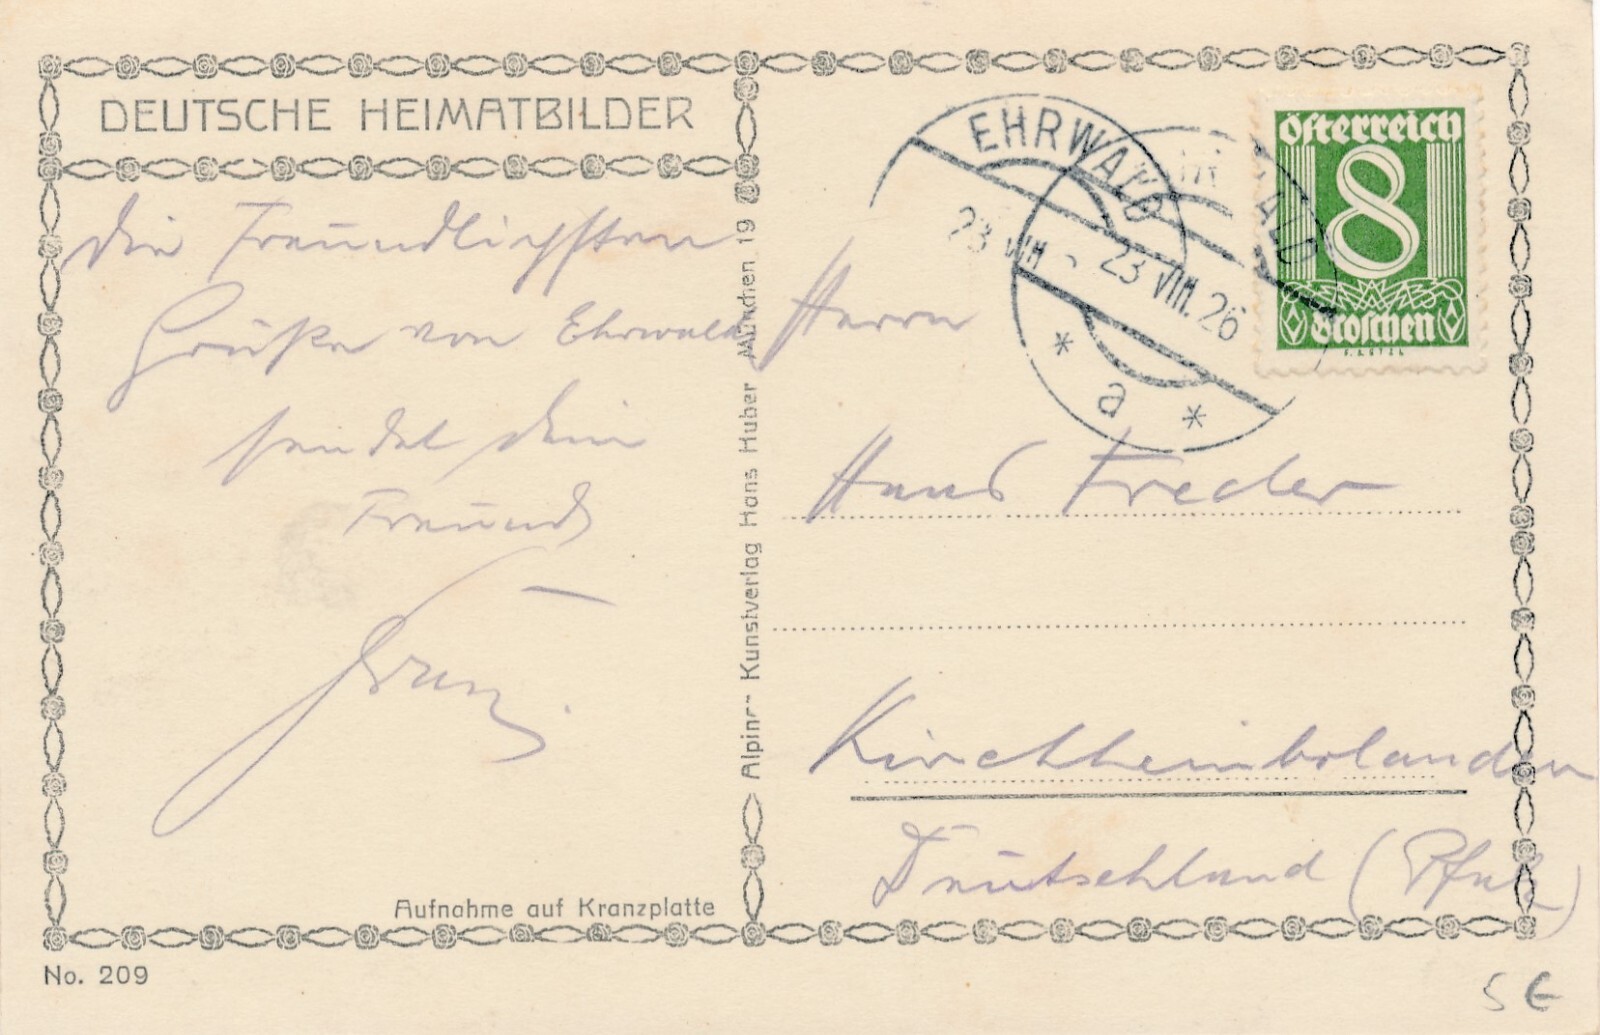 DEUTSCHE HEIMATBILDER
Die Freundlichsten
Grüße von Ehrwald
sendet dein
Freund
Franz.
Aufnahme auf Kranzplatte
No. 209
Alpiner Kunstverlag Hans Huber München 19
EHRWALD
23 VIII
23 VIII. 26
* a *
Österreich
8
Groschen
Herrn
Hans Freder
Kirchheimbolanden
Deutschland (Pfalz)
5 €